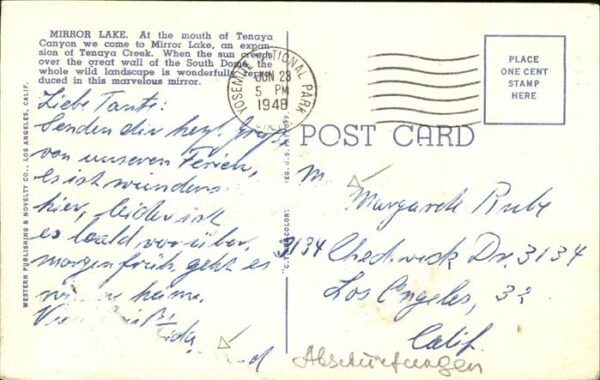 MIRROR LAKE. At the mouth of Tenaya
Canyon we come to Mirror Lake, an expan-
sion of Tenaya Creek. When the sun creeps
over the great wall of the South Dome, the
whole wild landscape is wonderfully repro-
duced in this marvelous mirror.
YOSEMITE NATIONAL PARK
JUN 23
5 PM
1948
PLACE
ONE CENT
STAMP
HERE
POST CARD
WESTERN PUBLISHING & NOVELTY CO., LOS ANGELES, CALIF.
Liebe Tante!
Senden dir herzl. Grüße
von unseren Ferien,
es ist wunders.
hier, leider ist
es bald vorüber,
morgen früh geht es
heim.
M. Margarete Ruby
3134 Chadwick Dr. 3134
Los Angeles, 32
Calif.
Abschürfungen